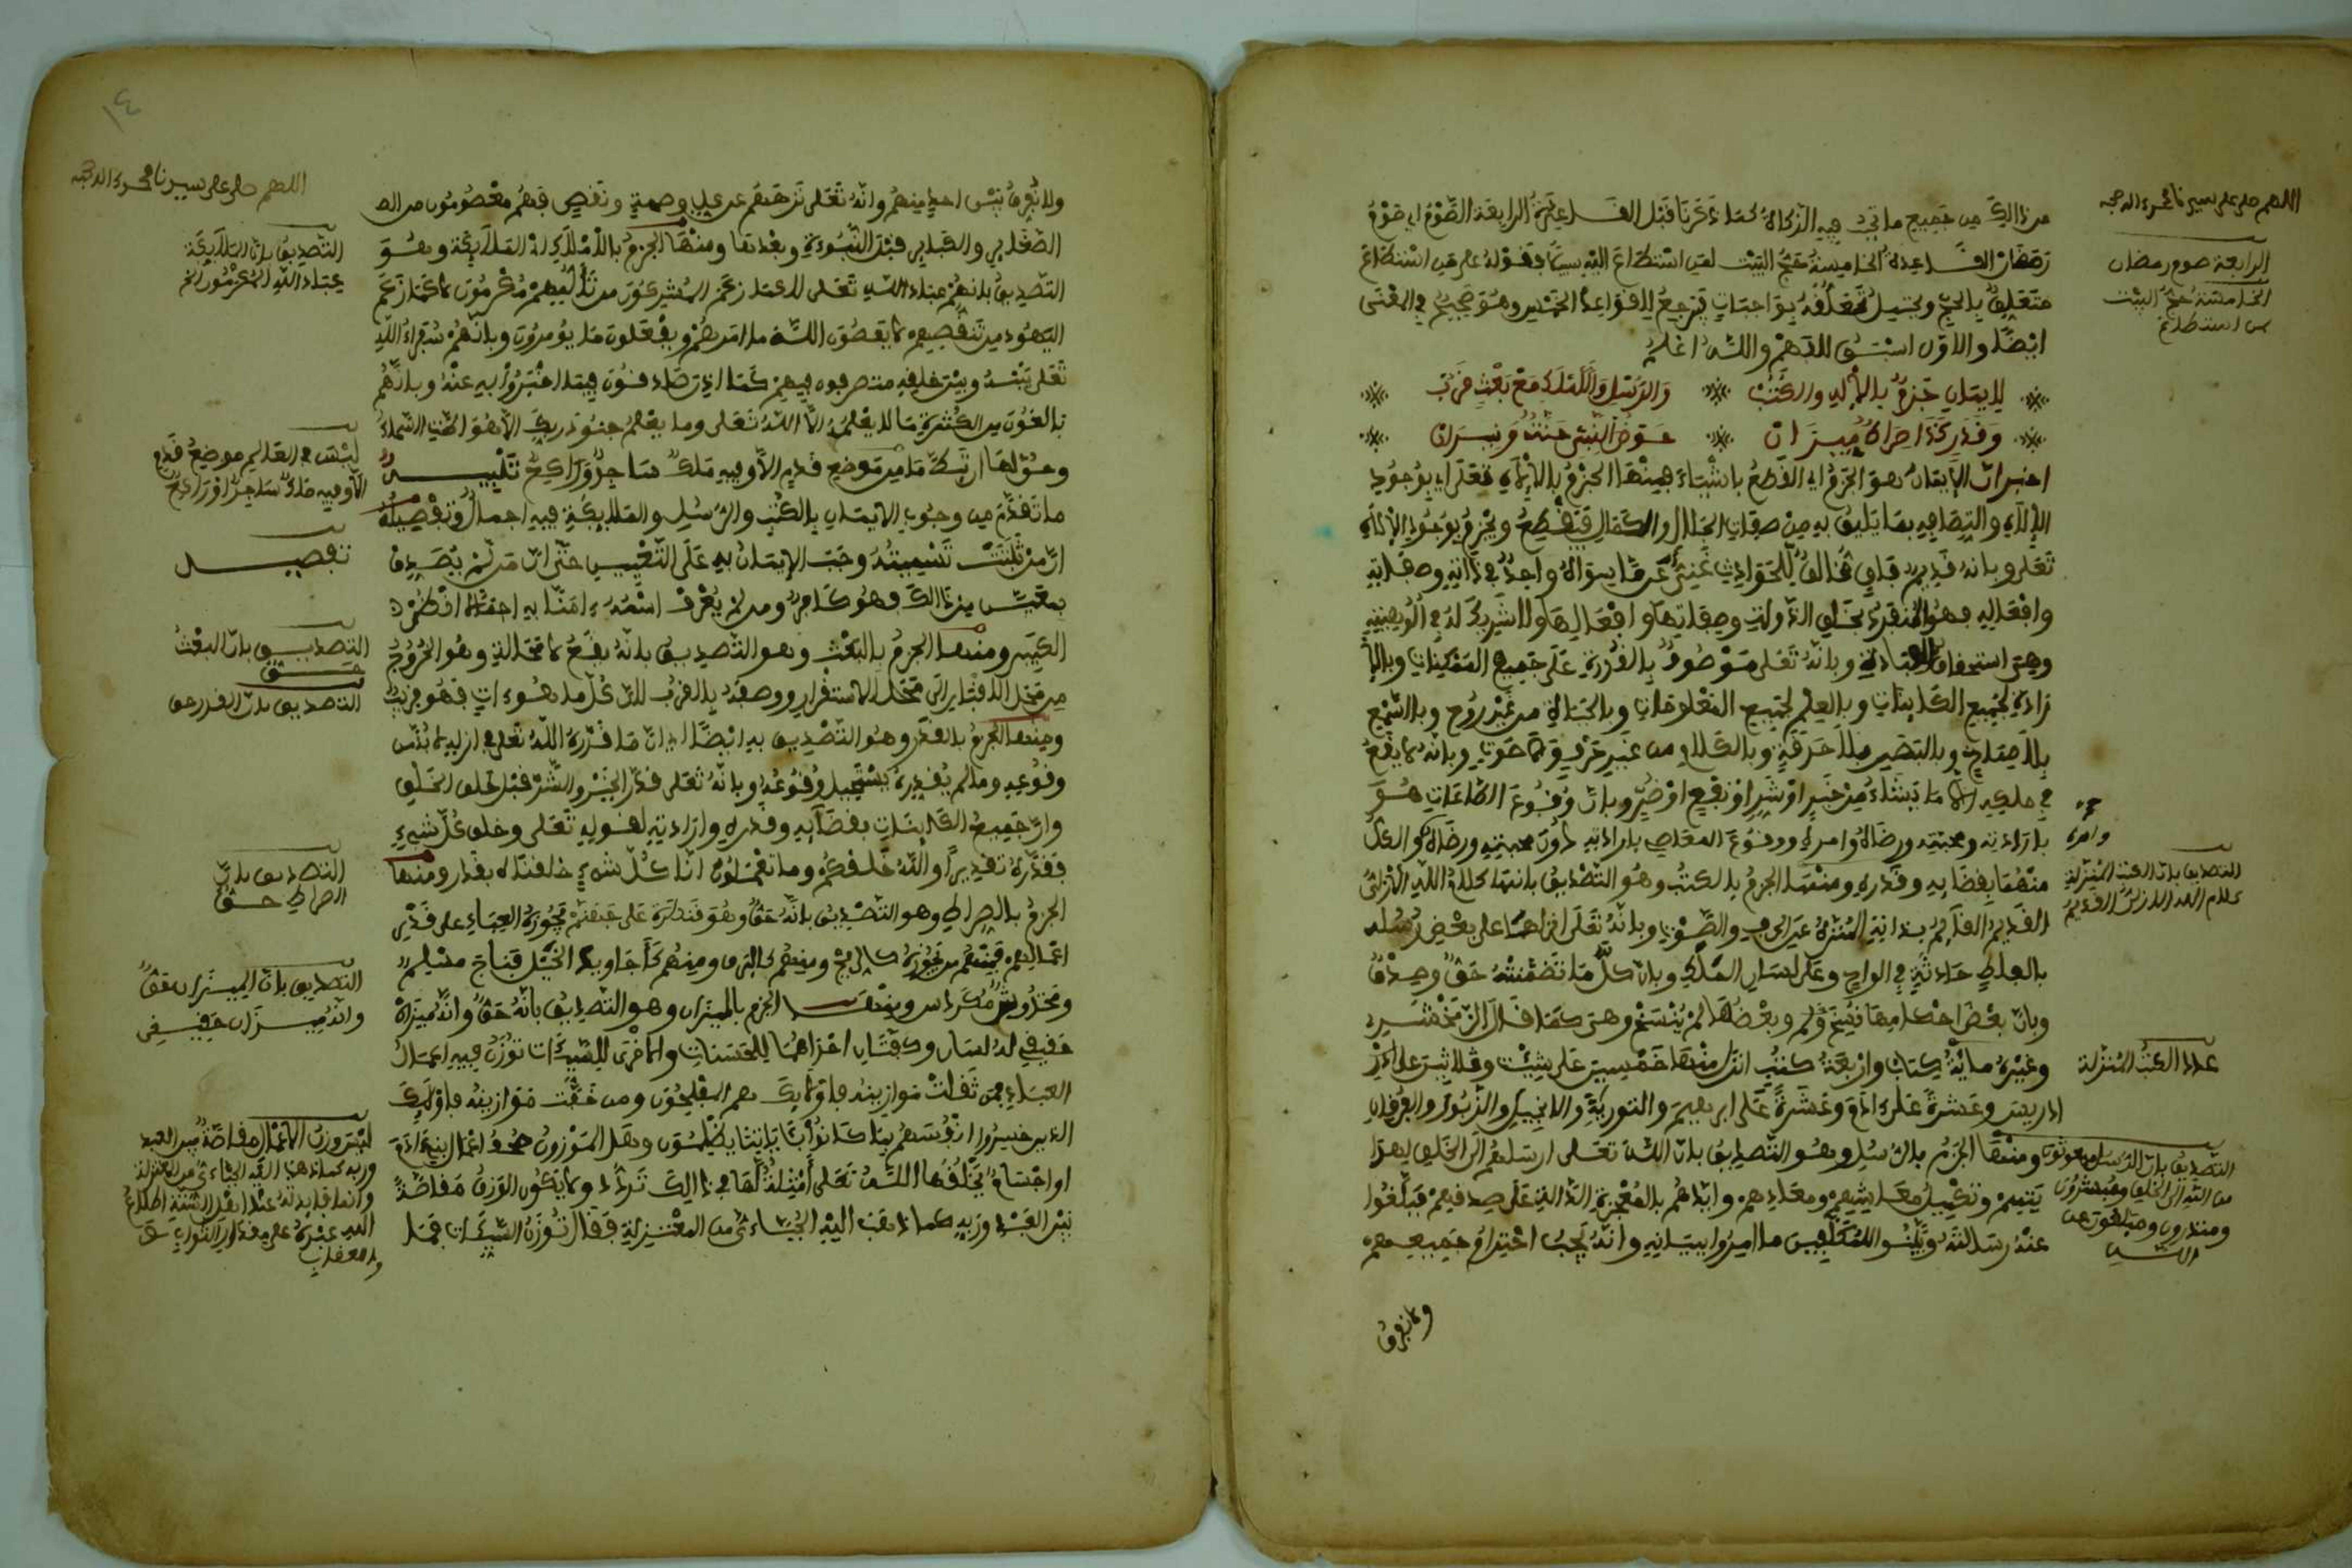 اللهم صل على سيدنا محمد وآله وصحبه
من ذالك من جميع ما تجب فيه الزكاة كما ذكرنا قبل القاعدة الرابعة الصوم اي صوم
رمضان القاعدة الخامسة حج البيت لمن استطاع اليه سبيلا فقوله على من استطاع
متعلق بالحج ويحتمل تعلقه بواجبات فيرجع للقواعد الخمس وهو صحيح في المعنى
ايضا والاول اسبق للفهم والله اعلم
للايمان جزم بالاله والكتب والرسل والاملاك مع بعث قرب
وقدر كذا صراط ميزان حوض النبي جنة ونيران
اخبر ان الايمان هو الجزم اي القطع باشياء فمنها الجزم بالاله تعلى اي بوجود
الاله واتصافه بما يليق به من صفات الجلال والكمال فيقطع ويجزم بوجود الاله
تعلى وبانه قديم باق مخالف للحوادث غني عن ما سواه واحد في ذاته وصفاته
وافعاله فهو المنفرد بخلق الذوات وصفاتها وافعالها ولا شريك له في ألوهيته
وهي استحقاق العبادة وبانه تعلى موصوف بالقدرة على جميع الممكنات وبالا
رادة لجميع الكائنات وبالعلم لجميع المعلومات وبالحياة من غير روح وبالسمع
بلا صماخ وبالبصر بلا حدقة وبالكلام من غير حرف ولا صوت وبانه لا يقع
في ملكه الا ما يشاء من خير او شر او نفع او ضر وبان وقوع الطاعات هو
بارادته ومحبته ورضاه وامره ووقوع المعاصي بارادته دون محبته ورضاه والكل
منهما بقضائه وقدره ومنها الجزم بالكتب وهو التصديق بانها كلام الله الازلي
القديم القائم بذاته المنزه عن الحرف والصوت وبانه تعلى انزلها على بعض رسله
بالفاظ حادثة في الواح وعلى لسان الملك وبان كل ما تضمنته حق وصدق
وبان بعض احكامها نسخ وبعضها لم ينسخ وهي كما قال الزمخشري
وغيره مائة كتاب واربعة كتب انزل منها خمسين على شيث وثلاثين على
ادريس وعشرة على ءادم وعشرة على ابرهيم والتورية والانجيل والزبور والفرقان
ومنها الجزم بالرسل وهو التصديق بان الله تعلى ارسلهم الى الخلق لهدا
يتهم وتكميل معاشهم ومعادهم وايدهم بالمعجزة الدالة على صدقهم فبلغوا
عنه رسالته وبينوا للمكلفين ما امروا ببيانه وانه يجب احترام جميعهم
ولا نفرق
الرابعة صوم رمضان
الخامسة حج البيت
من استطاع
وامره
التصديق بان الكتب المنزلة
كلام الله الازلي القديم
عدد الكتب المنزلة
التصديق بان الرسل مبعوثون
من الله الى الخلق ومبشرون
ومنذرون ومبلغون عن
الله
١٤
اللهم صل على سيدنا محمد وآله وصحبه
ولا نفرق بين احد منهم وانه تعلى نزههم عن كل وصمة ونقص فهم معصومون من ال
الصغائر والكبائر قبل النبوءة وبعدها ومنها الجزم بالاملاك اذ الملائكة وهو
التصديق بانهم عباد الله تعلى لا كما زعم المشركون من تأليههم مكرمون لا كما زعم
اليهود من تنقيصهم لا يعصون الله ما امرهم ويفعلون ما يؤمرون وبانهم سفراء الله
تعلى بينه وبين خلقه متصرفون فيهم كما اذن صادقون فيما اخبروا به عنه وبانهم
بالغون من الكثرة ما لا يعلمه الا الله تعلى وما يعلم جنود ربك الا هو اطت السماء
وحق لها ان تئط ما من موضع قدم الا وفيه ملك ساجد وراكع تنبيه
ما تقدم من وجوب الايمان بالكتب والرسل والملائكة فيه اجمال وتفصيله
ان من ثبتت تسميته وجب الايمان به على التعيين حتى ان من لم يصدق
بمعين من ذالك فهو كافر ومن لم يعرف اسمه ءامنا به اجمالا
ومنها الجزم بالبعث وهو التصديق بانه يقع لا محالة وهو الخروج
من محل الدفن الى محل الاستقرار ووصفه بالقرب لان كل ما هو ءات فهو قريب
ومنها الجزم بالقدر وهو التصديق به ايضا اي ان ما قدره الله تعلى في ازله لا بد من
وقوعه وما لم يقدره يستحيل وقوعه وبانه تعلى قدر الخير والشر قبل خلق الخلق
وان جميع الكائنات بقضائه وقدره وارادته لقوله تعلى وخلق كل شيء
فقدره تقديرا والله خلقكم وما تعملون انا كل شيء خلقناه بقدر ومنها
الجزم بالصراط وهو التصديق بانه حق وهو قنطرة على جهنم يجوزه العباد على قدر
اعمالهم فمنهم من يجوزه كالريح ومنهم كالبرق ومنهم كأجاويد الخيل فناج مسلم
ومخدوش ومكردس ومنها الجزم بالميزان وهو التصديق بانه حق وانه ميزان
حقيقي له لسان وكفتان احداهما للحسنات والاخرى للسيئات توزن فيه اعمال
العباد فمن ثقلت موازينه فاولئك هم المفلحون ومن خفت موازينه فاولئك
الذين خسروا انفسهم بما كانوا بآياتنا يظلمون وهل الموزون صحف اعمال بني ءادم
او اجسام يخلقها الله تعلى أمثلة لها في ذالك تردد ولا يكون الوزن مقاصة
بين العبد وربه كما ذهب اليه الجبائي من المعتزلة فقال توزن السيئات فما
التصديق بان الملائكة
عباد الله المكرمون الخ
ليس في العالم موضع قدم
الا وفيه ملك ساجد او راكع
تفصيل
التصديق بان البعث
حق
التصديق بان القدر حق
التصديق بان
الصراط حق
التصديق بان الميزان حق
وانه ميزان حقيقي
ليس وزن الاعمال مقاصة بين العبد
وربه كما ذهب اليه الجبائي من المعتزلة